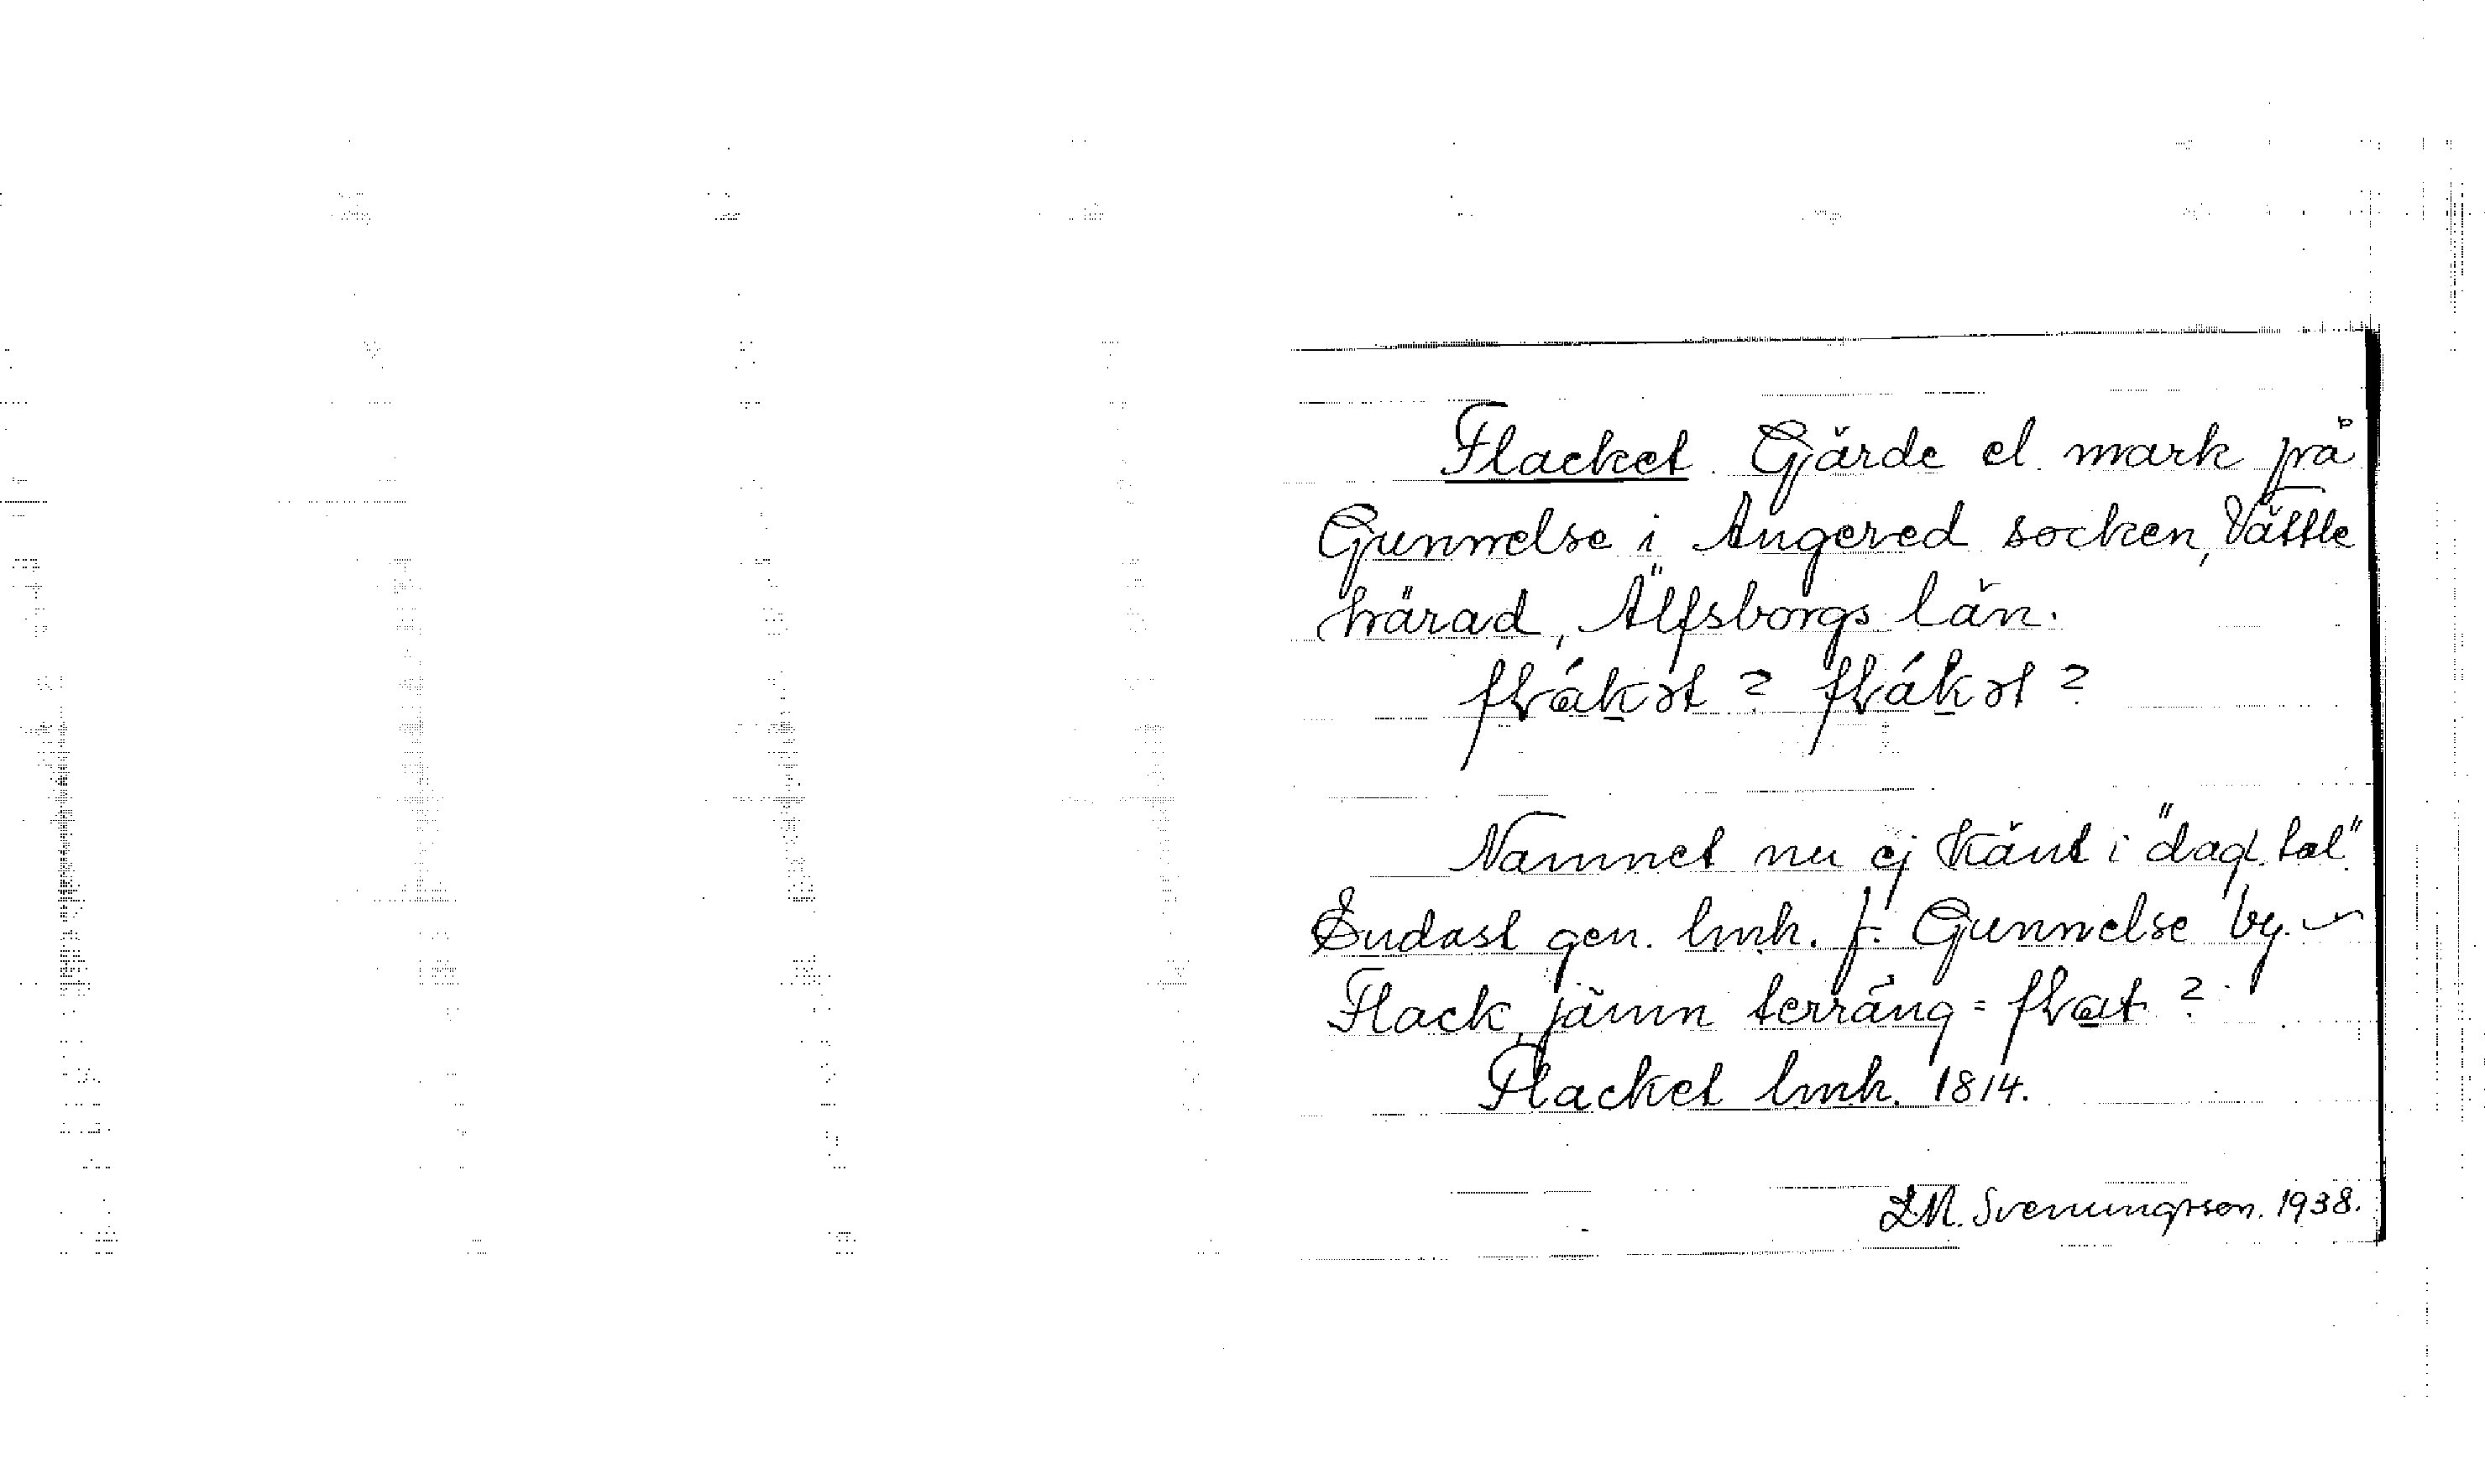 Flacket. Gärde el. mark på
Gunnelse i Angered socken, Vättle
härad, Älfsborgs län.
Namnet nu ej känt i "dagl. tal".
Endast gen. lmh. f. Gunnelse by. –
Flack, jämn terräng = flat ?
Flacket lmh. 1814.
L.M. Svenungsson. 1938.